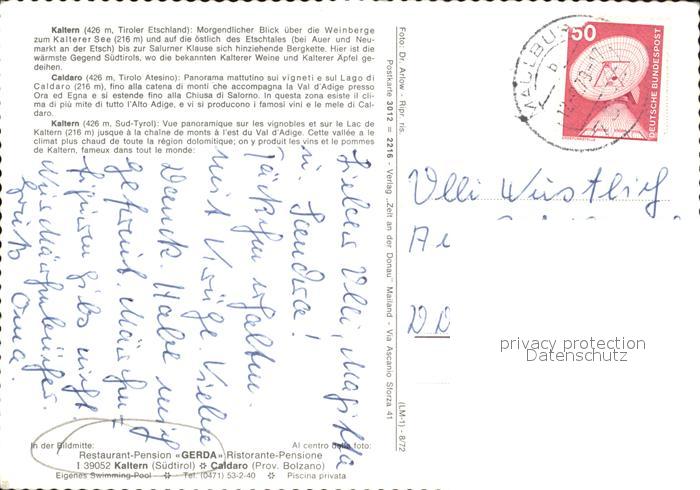 Kaltern (426 m, Tiroler Etschland): Morgendlicher Blick über die Weinberge
zum Kalterer See (216 m) und auf die östlich des Etschtales (bei Auer und Neu-
markt an der Etsch) bis zur Salurner Klause sich hinziehende Bergkette. Hier ist die
wärmste Gegend Südtirols, wo die bekannten Kalterer Weine und Kalterer Äpfel ge-
deihen.
Caldaro (426 m, Tirolo Atesino): Panorama mattutino sui vigneti e sul Lago di
Caldaro (216 m), fino alla catena di monti che accompagna la Val d'Adige presso
Ora ed Egna e si estende fino alla Chiusa di Salorno. In questa zona esiste il cli-
ma di più mite di tutto l'Alto Adige, e vi si producono i famosi vini e le mele di Cal-
daro.
Kaltern (426 m, Sud-Tyrol): Vue panoramique sur les vignobles et sur le Lac de
Kaltern (216 m) jusque à la chaîne de monts à l'est du Val d'Adige. Cette vallée a le
climat plus chaud de toute la région dolomitique; on y produit les vins et le pommes
de Kaltern, fameux dans tout le monde:
Lieber Ulli, Magitta
u. Sandra!
Päckchen erhalten.
Vielen
Dank. Habe mich
gefreut. Märchen-
figuren gibs nicht
nur
Gruß Oma
In der Bildmitte: Al centro della foto:
Restaurant-Pension «GERDA» Ristorante-Pensione
I 39052 Kaltern (Südtirol) ✩ Caldaro (Prov. Bolzano)
Eigenes Swimming-Pool ✩ Tel. (0471) 53-2-40 ✩ Piscina privata
Foto: Dr. Arlow - Ripr. ris.
Postkarte 3012 = 2216 - Verlag „Zeit an der Donau" Mailand - Via Ascanio Sforza 41
(LM-1) - 8/72
MAULBURG
b
50
DEUTSCHE BUNDESPOST
Ulli Wüstlich
privacy protection
Datenschutz